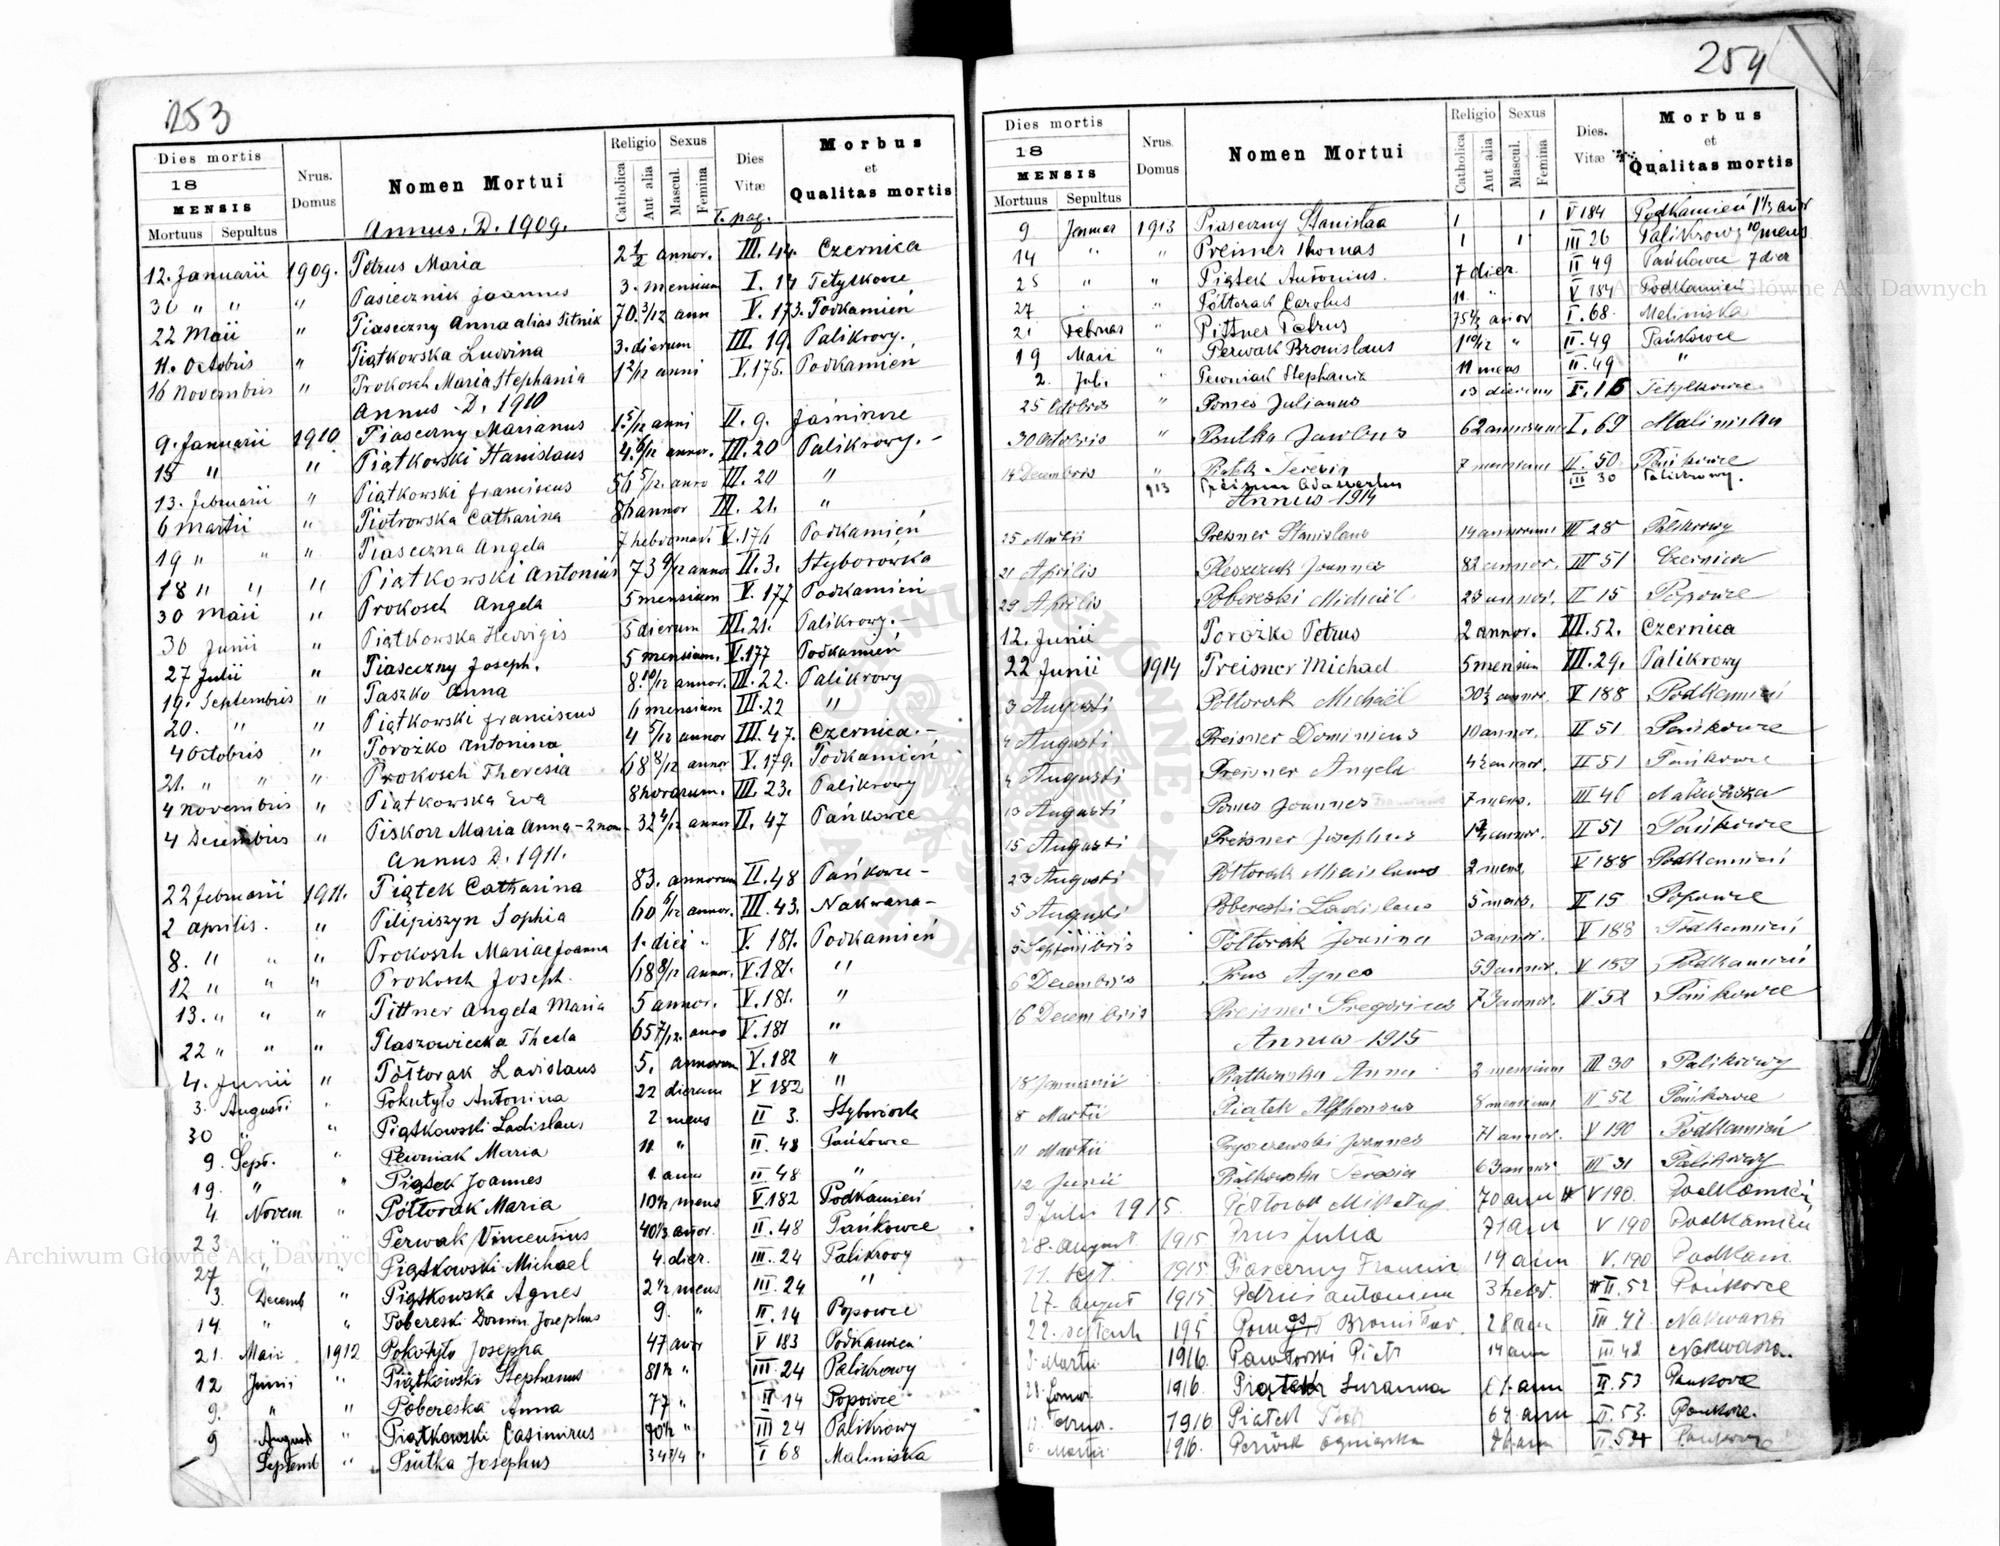 253
Dies mortis
18
MENSIS
Mortuus Sepultus
Nrus. Domus
Nomen Mortui
Religio Sexus
Catholica Aut alia Mascul. Femina
Dies Vitæ
Morbus et Qualitas mortis
T. pag.
Annus. D. 1909.
12. Januarii 1909. Petrus Maria 2 1/2 annor. III. 44. Czernica
30 " " " Pasiecznik Joannes 3. mensium I. 14 Tetylkowce
22 Maii " Piaseczny Anna alias Pitnik 70. 3/12 ann V. 173. Podkamień
11. Octobris " Piątkowska Ludvina 3. dierum III. 19. Palikrowy.
16 Novembris " Prokosch Maria Stephania 1 2/12 anni V. 175. Podkamien
Annus D. 1910
9. Januarii 1910 Piaseczny Marianus 1. 5/12 anni II. 9. Jasinowe
15 " " Piątkowski Stanislaus 4. 6/12 annor. III. 20 Palikrowy. -
13. Februarii " Piątkowski Franciscus 56 5/12 anno III. 20 "
6 Martii " Piotrowska Catharina 86 annor III. 21. "
19 " " " Piaseczna Angela 7 hebdomadi V. 176 Podkamień
18 " " " Piątkowski Antonius 73 9/12 annor II. 3. Styborowka
30 Maii " Prokosch Angela 5 mensium V. 177 Podkamień
30 Junii " Piątkowska Hedvigis 5 dierum III. 21. Palikrowy. -
27 Julii " Piaseczny Joseph. 5 mensium. V. 177 Podkamień
19. Septembris " Paszko Anna 8. 10/12 annor. III. 22. Palikrowy
20. " " Piątkowski Franciscus 6 mensium III. 22 "
4 Octobris " Porożko Antonina 4 5/12 annor III. 47. Czernica. -
21. " " " Prokosch Theresia 68 8/12 annor V. 179. Podkamień
4 Novembris " Piątkowska Eva 8 horarum. III. 23. Palikrowy
4 Decembris " Piskorz Maria Anna - 2 nom 32 4/12 annor II. 47 Pańkowce
Annus D. 1911.
22 Februarii 1911. Piątek Catharina 83. annorum II. 48 Pańkowce -
2 Aprilis. " Pilipiszyn Sophia 60 6/12 annor. III. 43. Nakwasza -
8. " " " Prokosch Mariae Joanna 1. diei " V. 181. Podkamień
12 " " " Prokosch Joseph. 68 8/12 annor. V. 181. "
13. " " " Pittner Angela Maria 5 annor. V. 181. "
22 " " " Ptaszowiecka Thecla 65 7/12. anno V. 181 "
4. Junii " Półtorak Ladislaus 5. annorum V. 182 "
3. Augusti " Pokutyło Antonina 22 dierum V 182 "
30 " " Piątkowski Ladislaus 2 mens II 3. Styborówka
9. Sept. " Pewniak Maria 11 " II. 48 Pańkowce
19. " " Piątek Joannes 1 ann II. 48 "
4. Novem " Półtorak Maria 10 1/2 mens V. 182 Podkamień
23 " " Perwak Vincentius 40 1/2 anor. II. 48 Pańkowce
27 " " Piątkowski Michael 4. dier. III. 24 Palikrowy
3. Decemb " Piątkowska Agnes 2 1/2 mens III. 24 "
14. " " Pobereski Domin. Josephus 9. " II. 14 Popowce
21. Maii 1912 Pokotyło Josepha 47 anor V 183 Podkamień
12 Junii " Piątkowski Stephanus 81 1/2 " III. 24 Palikrowy
9. " " Pobereska Anna 77 " II 14 Popowce
9 August " Piątkowski Casimirus 70 1/2 " III 24 Palikrowy
Septemb " Psutka Josephus 34 3/4 " I 68 Maliniska
254
Dies mortis
18
MENSIS
Mortuus Sepultus
Nrus. Domus
Nomen Mortui
Religio Sexus
Catholica Aut alia Mascul. Femina
Dies. Vitæ
Morbus et Qualitas mortis
9 Januar 1913 Piaseczny Stanislaa 1 1 V 184 Podkamień 1 1/2 anor
14 " " Preisner Thomas 1 1 III 26 Palikrowy 10/ mens
25 " " Piątek Antonius. 7 dier. II 49 Pańkowce 7 dier
27 " " Półtorak Carolus 11 " V 184 Podkamień
21 Februar " Pittner Petrus 75 1/2 anor I. 68. Maliniska
19 Maii " Perwak Bronislaus 1 10/12 " II. 49 Pańkowce
2. Juli. " Pewniak Stephania 11 mens II. 49 "
25 Octobris " Pomes Julianus 13 dierum I. 15 Tetylkowce
30 Octobris " Psutka Jacobus 62 annorum I. 69 Maliniska
14 Decembris " Piątek Teresia 7 mensium II. 50 Pańkowce
913 III 30 Palikrowy.
Annus 1914
25 Martii Preisner Stanislaus 14 annorum III 28 Palikrowy
21 Aprilis Pleszczuk Joannes 82 annor. III 51 Czernica
29 Aprilis Pobereski Michaël 23 annor. II 15 Popowce
12. Junii Porożko Petrus 2 annor. III. 52. Czernica
22 Junii 1914 Preisner Michael 5 mensium III. 29. Palikrowy
3 Augusti Półtorak Michaël 30 1/2 annor. V 188 Podkamień
4 Augusti Preisner Dominicus 10 annor. II 51 Pańkowce
4 Augusti Preisner Angela 4 1/2 annor. II 51 Pańkowce
13 Augusti Pomes Joannes 7 mens. III 46
15 Augusti Preisner Josephus annor. II 51 Pańkowce
23 Augusti Półtorak 2 mens V 188 Podkamień
5 Augusti Pobereski Ladislaus 5 mens. II 15 Popowce
5 Septembris Półtorak Joanna 3 annor. V 188 Podkamień
6 Decembris Prus Agnes 59 annor. V 189 Podkamień
16 Decembris Preisner Gregorius 73 annor. II 52 Pańkowce
Annus 1915
18 Januarii Piątkowska Anna 2 mensium III 30 Palikrowy
8 Martii Piątek Alphonsus 8 mensium II 52 Pańkowce
11 Martii Joannes 71 annor. V 190 Podkamień
12 Junii Piątkowska Teresia 63 annor III 31 Palikrowy
9 Julii 1915. Półtorak Mikołaj 70 ann V 190. Podkamień
28. August 1915 Prus Julia 71 ann V 190 Podkamień
11. Sept. 1915 Piaseczny Francis 19 ann V. 190 Podkam.
27. August 1915. Petrus Antonina 3 hebd. II. 52 Pańkowce
22. Septemb 195 Bronisław. 28 ann III. 42 Nakwasza
8. Martii 1916. Pawłowski Piotr 14 ann III. 48 Nakwasza.
1916. Piątek Zuzanna ann II. 53 Pańkowce
1916 Piątek Piotr 64 ann II. 53. Pańkowce.
6. Martii 1916. Agnieszka 76 ann II. 54 Pańkowce
Archiwum Główne Akt Dawnych
Archiwum Główne Akt Dawnych
ARCHIWUM GŁÓWNE AKT DAWNYCH